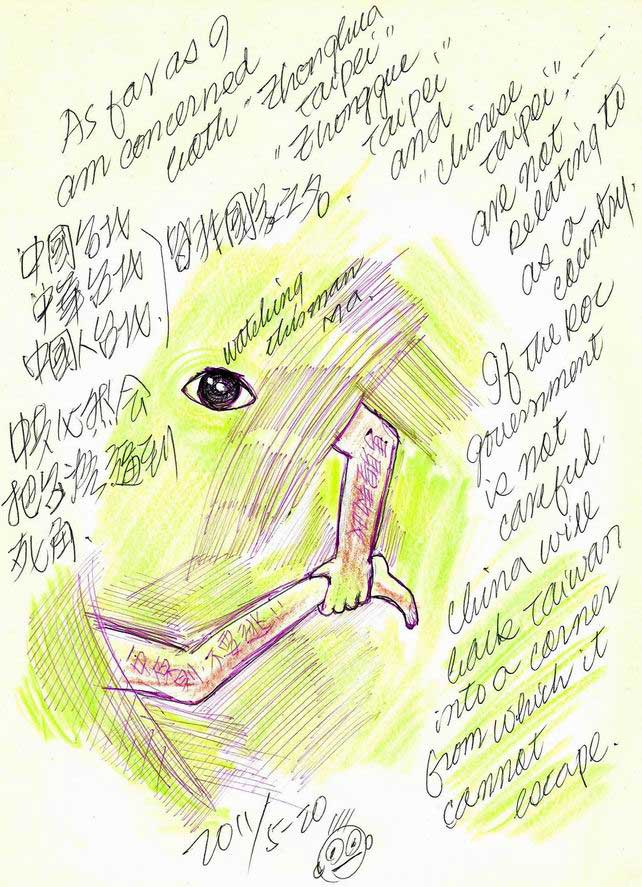 As far as I
am concerned
both "Zhonghua
Taipei"
"Zhongguo
Taipei"
and
"Chinese
Taipei"......
are not
relating to
as a
country.
中國台北
中華台北
中國人台北
皆非國家之名.
watching
this man
Ma.
中共必然會
把台灣逼到
死角.
If the ROC
government
is not
careful.
China will
back Taiwan
into a corner
from which it
cannot
escape.
2011/5-20